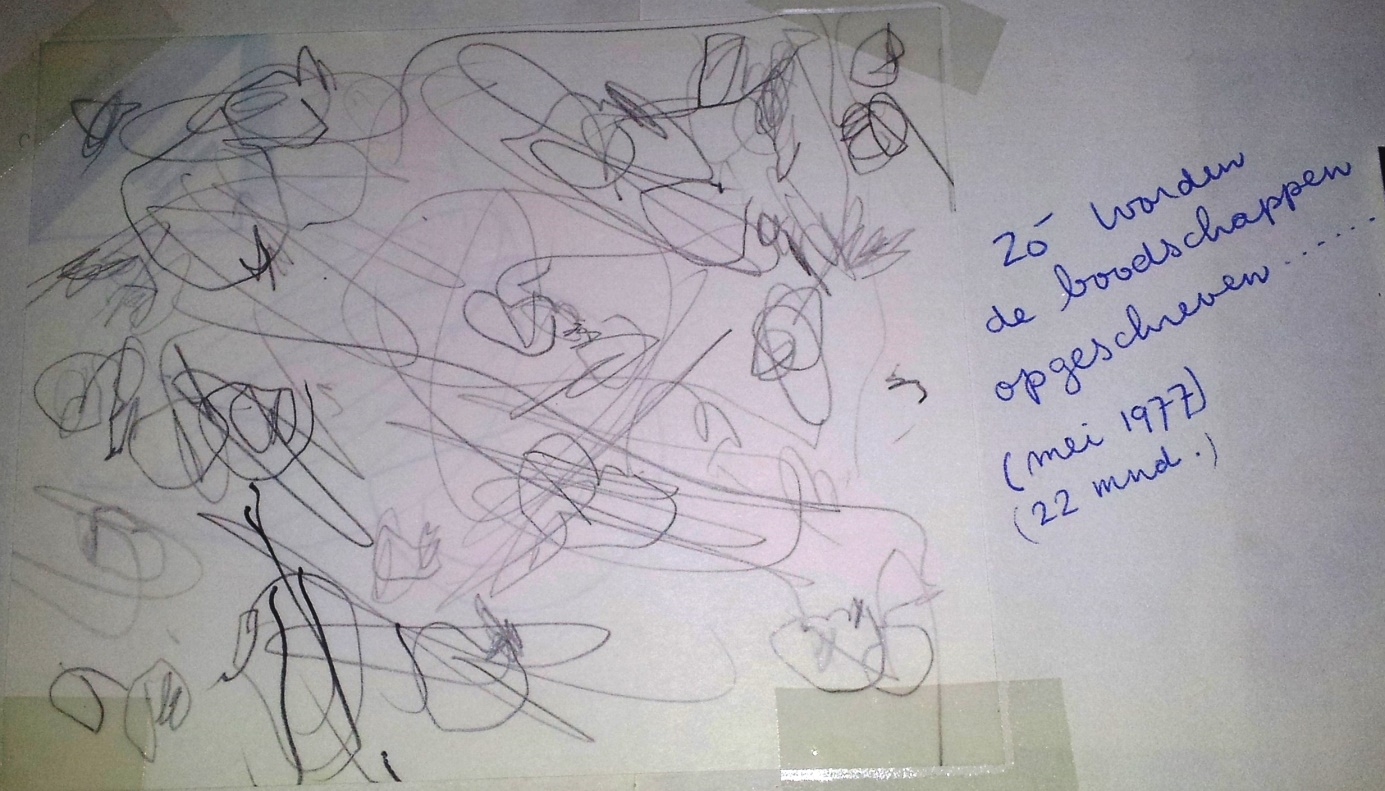 Zó worden
de boodschappen
opgeschreven......
(mei 1977)
(22 mnd.)